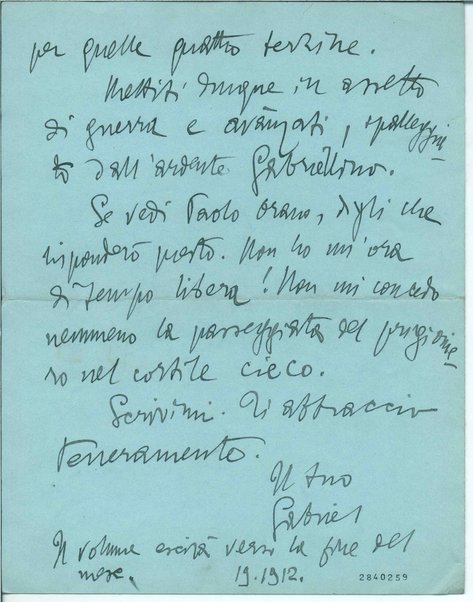 per quelle quattro terzine.
Mettiti dunque in assetto
di guerra e avànzati, spalleggia-
to dall'ardente Gabriellino.
Se vedi Paolo Orano, digli che
risponderò presto. Non ho un'ora
di tempo libera! Non mi concedo
nemmeno la passeggiata del prigionie-
ro nel cortile cieco.
Scrivimi. Ti abbraccio
teneramente.
Il tuo
Gabriel
Il volume escirà verso la fine del
mese. 19.1912.
2840259